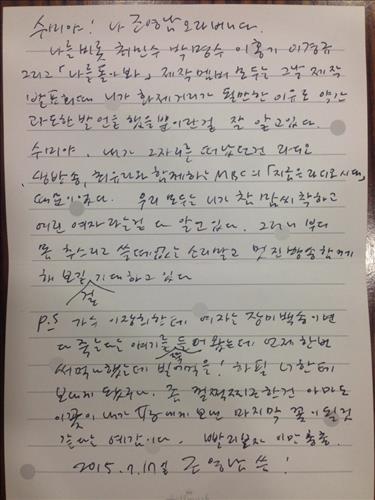 수미야! 나 조영남 오라버니다.
나를 비롯 최민수 박명수 이홍기 이경규
그리고 「나를 돌아봐」 제작멤버 모두는 그날 제작
발표회때 니가 화제거리가 될만한 이유로 약간
과도한 발언을 했을 뿐이란걸 잘 알고있다.
수미야, 내가 그자리를 떠났던건 라디오
생방송, 최유라와 함께하는 MBC의 「지금은 라디오시대」
때문이었다. 우리 모두는 니가 참 맘씨 착하고
여린 여자라는걸 다 알고있다. 그러니 부디
몸 추스리고 쓸데없는 소리말고 멋진 방송 함께
해 보길 기대하고 있다
걸
P.S 가수 이장희한테 여자는 장미 백송이면
다 죽는다는 얘기를 들어 왔는데 언제 한번
써먹나 했는데 벌써 먹음! 하필 너한테
보내게 됐구나. 좀 껄쩍찌근한건 아마도
이꽃이 내가 여자에게 보낸 마지막 꽃이 될것
같다는 예감이다. 빨리보자 이만 총총.
2015. 7. 17일 조영남 씀!